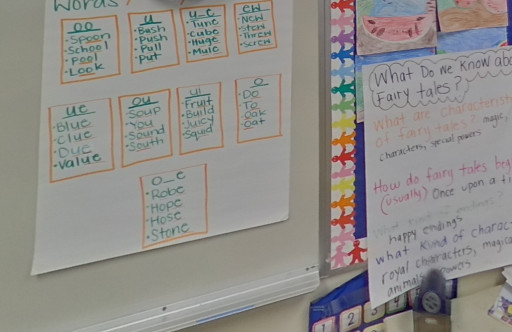 Words?
oo
·Spoon
·School
·Pool
·Look
u
·Bush
·Push
·Pull
·Put
u_c
·Tune
·Cube
·Huge
·Mule
ew
·New
·Stew
·Threw
·Screw
ue
·Blue
·Clue
·Due
·Value
ou
·Soup
·You
·Sound
·South
ui
·Fruit
·Build
·Juicy
·Squid
o
·Do
·To
·Oak
·Oat
o_e
·Robe
·Hope
·Hose
·Stone
What Do we know
Fairy tales?
What are
of fairy tales? magic,
characters, special powers
How do fairy tales
(usually) Once upon a
happy endings
what kind of
royal characters,
1 2 3 4